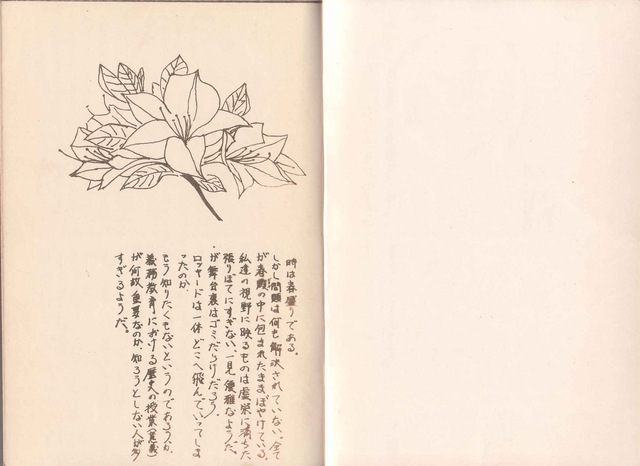 時は春盛りである。
しかし問題は何も解決されていない。全て
が春霞の中に包まれたままぼやけている。
私達の視野に映るものは虚栄に満ちた
張りぼてにすぎない。一見優雅なようだ
が舞台裏はゴミだらけだろう。
ロッキードは一体どこへ飛んでいってしま
ったのか。
もう知りたくもないというのであろうか。
義務教育における歴史の授業(意義)
が何故重要なのか、知ろうとしない人が多
すぎるようだ。